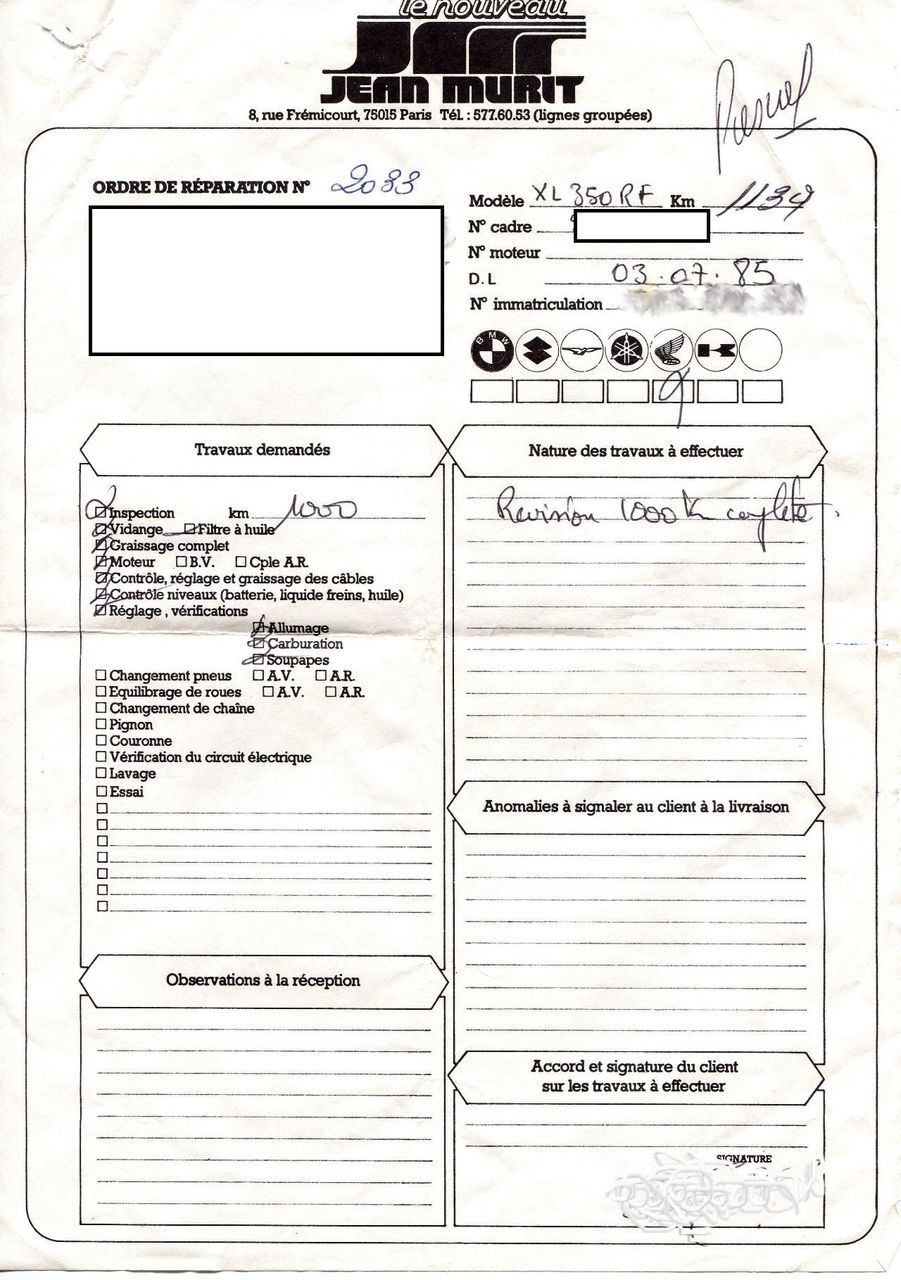 le nouveau
JEAN MURIT
8, rue Frémicourt, 75015 Paris Tél : 577.60.53 (lignes groupées)
Pascal
ORDRE DE RÉPARATION N° 2033
Modèle XL 350 RF Km 1139
N° cadre
N° moteur
D.L 03.07.85
N° immatriculation
BMW
Travaux demandés
Inspection km 1000
Vidange Filtre à huile
Graissage complet
Moteur B.V. Cple A.R.
Contrôle, réglage et graissage des câbles
Contrôle niveaux (batterie, liquide freins, huile)
Réglage, vérifications
Allumage
Carburation
Soupapes
Changement pneus A.V. A.R.
Equilibrage de roues A.V. A.R.
Changement de chaîne
Pignon
Couronne
Vérification du circuit électrique
Lavage
Essai
Observations à la réception
Nature des travaux à effectuer
Revision 1000 K complete.
Anomalies à signaler au client à la livraison
Accord et signature du client
sur les travaux à effectuer
SIGNATURE